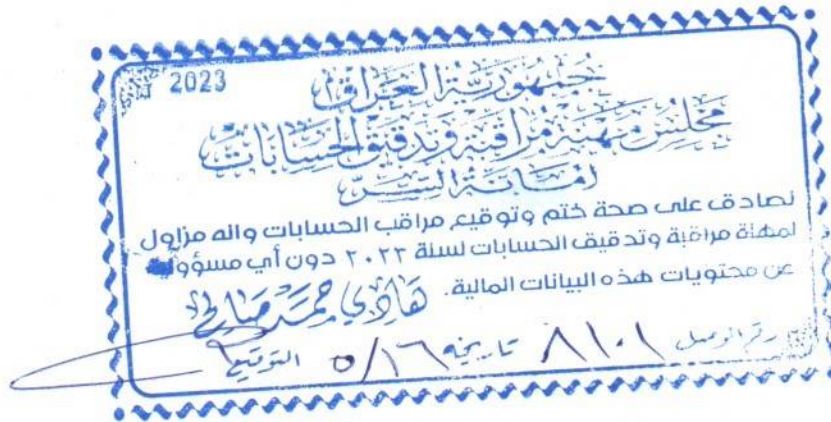 2023
جمهورية العراق
مجلس مهنة مراقبة وتدقيق الحسابات
امانة السر
نصادق على صحة ختم وتوقيع مراقب الحسابات وانه مزاول
لمهنة مراقبة وتدقيق الحسابات لسنة ٢٠٢٣ دون أي مسؤولية
عن محتويات هذه البيانات المالية.
هادي حمد صالح
رقم الوصل ٨١٠١ تاريخه ٥/١٦ التوقيع